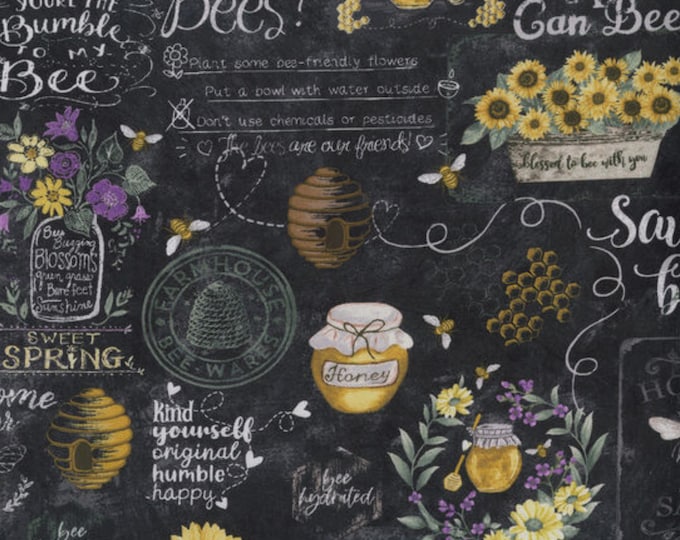 YOU'RE THE
Bumble
TO MY
Bee
Bees!
Can Bee
Plant some bee-friendly flowers
Put a bowl with water outside
Don't use chemicals or pesticides
The bees are our friends!
blessed to bee with you
Bees
Buzzing
Blossoms
green grass
Bare feet
Sunshine
SWEET
SPRING
FARMHOUSE
BEE-WARES
Honey
kind
yourself
original
humble
happy
bee
hydrated
bee